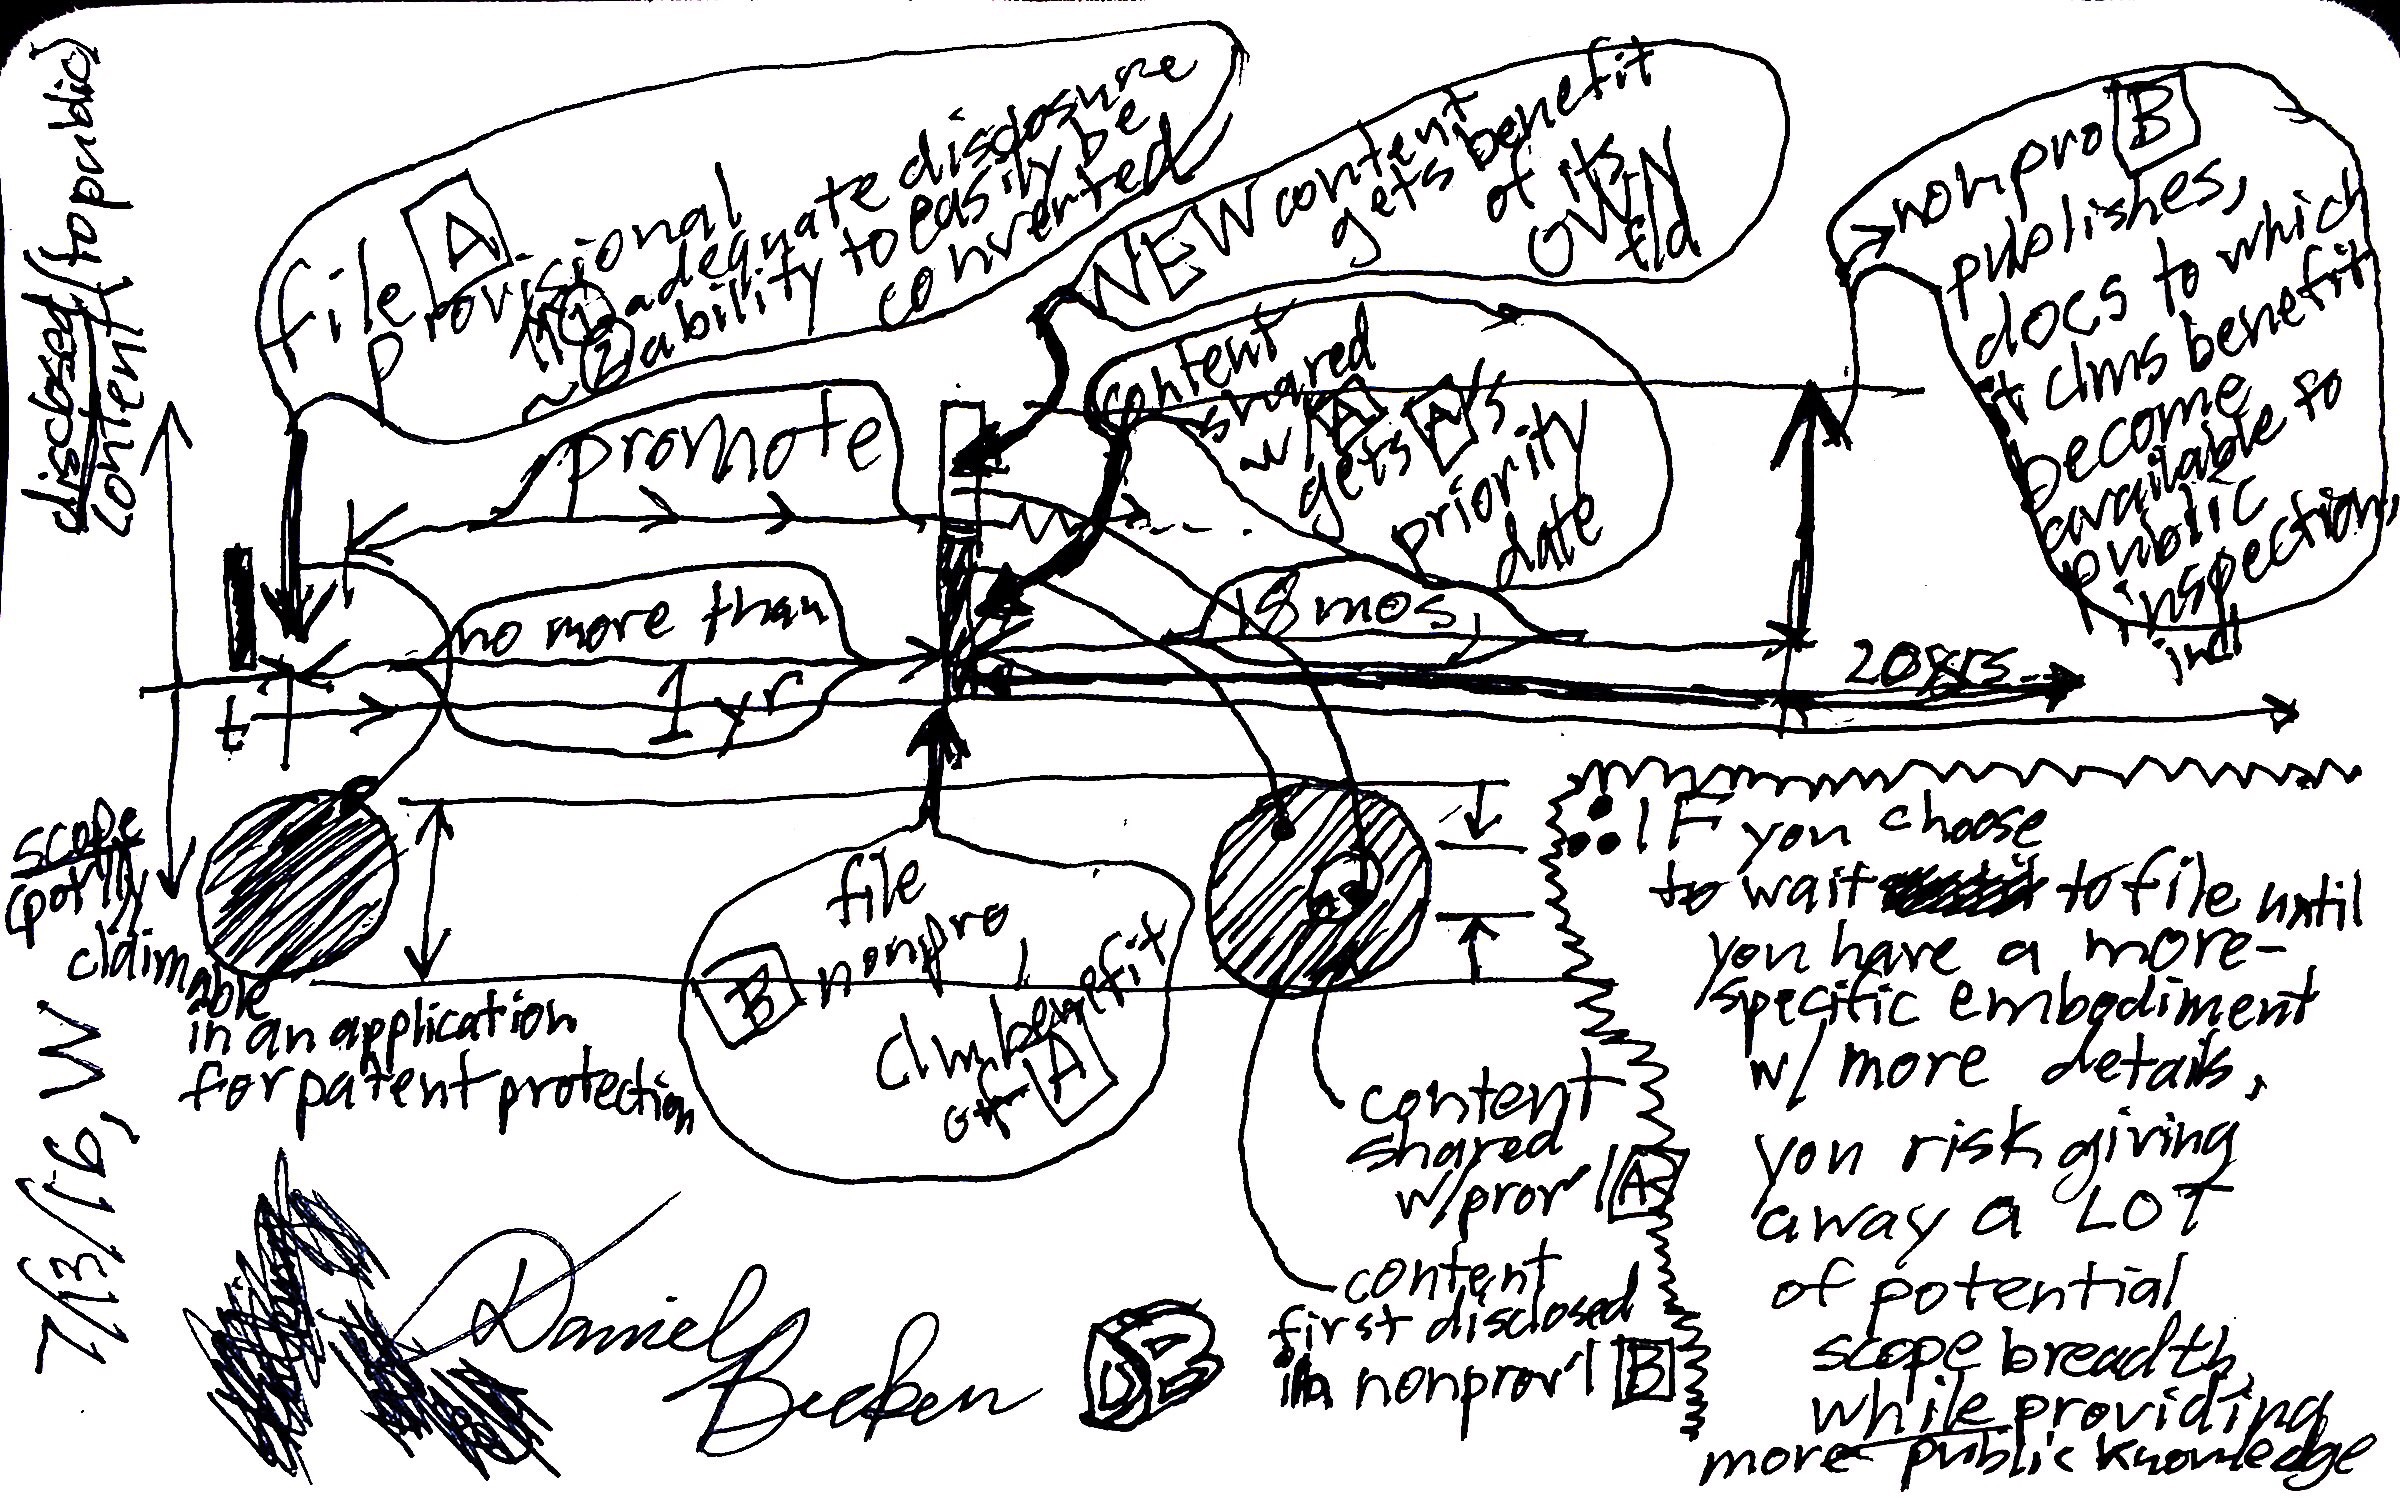 disclosed (to public)
content
file [A]
provisional
w/ ① adequate disclosure
~ ② ability to easily be
converted
NEW content
gets benefit
of its
OWN
f/d
→ nonpro [B]
publishes,
docs to which
it clms benefit
become
available to
public
inspection,
promote
content
shared
w/ [A]
gets [A]'s
priority
date
no more than
1 yr
18 mos,
20 yrs
t
scope
claimable
in an application
for patent protection
file
[B] nonpro
clm benefit
of [A]
content
shared
w/prov'l [A]
content
first disclosed
in nonprov'l [B]
IF you choose
to wait to file until
you have a more-
specific embodiment
w/ more details,
you risk giving
away a LOT
of potential
scope breadth,
while providing
more public knowledge
7/13/16, W
Daniel
DB